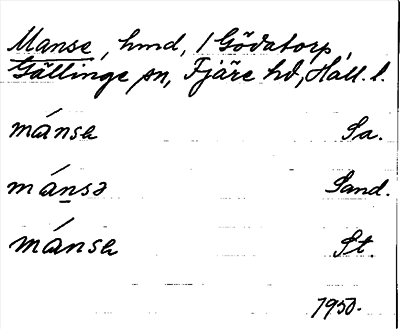 Manse, hmd, 1 Gödatorp,
Gällinge sn, Fjäre hd, Hall. l.
mánsɐ Sa.
mánsə Sand.
mánsɐ St.
1950.